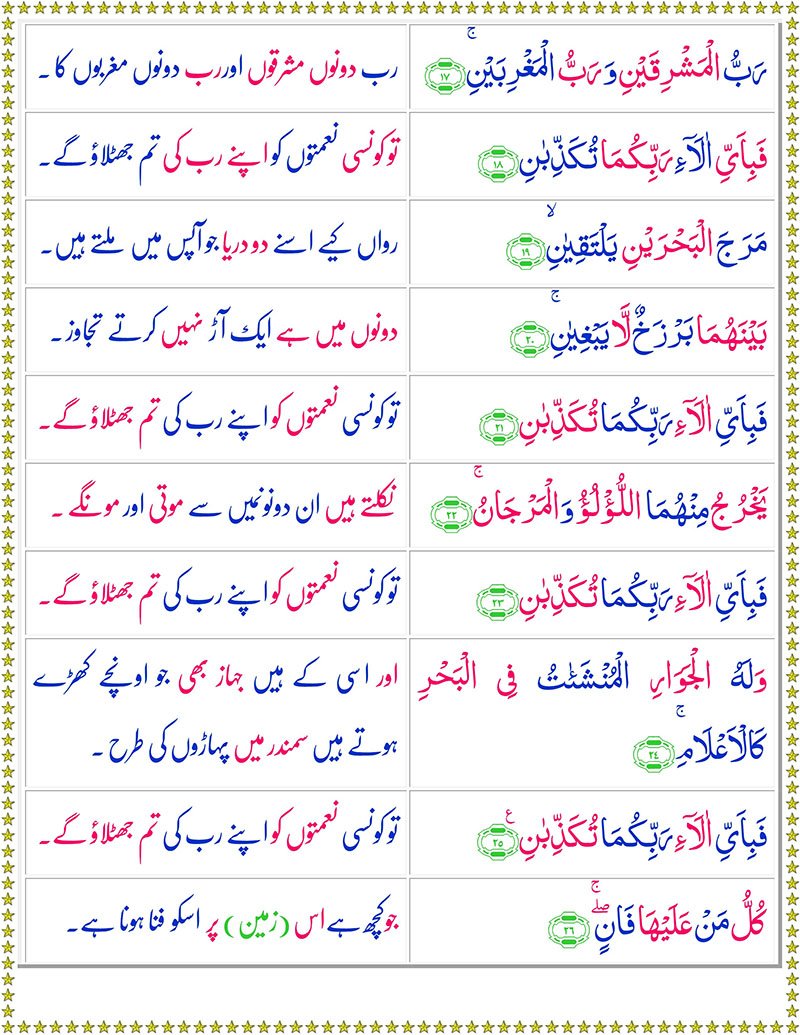 رَبُّ الْمَشْرِقَيْنِ وَرَبُّ الْمَغْرِبَيْنِۚ ۱۷
رب دونوں مشرقوں اور رب دونوں مغربوں کا ۔
فَبِاَيِّ اٰلَآءِ رَبِّكُمَا تُكَذِّبٰنِ ۱۸
تو کونسی نعمتوں کو اپنے رب کی تم جھٹلاؤ گے ۔
مَرَجَ الْبَحْرَيْنِ يَلْتَقِيٰنِۙ ۱۹
رواں کیے اسنے دو دریا جو آپس میں ملتے ہیں ۔
بَيْنَهُمَا بَرْزَخٌ لَّا يَبْغِيٰنِۚ ۲۰
دونوں میں ہے ایک آڑ نہیں کرتے تجاوز ۔
فَبِاَيِّ اٰلَآءِ رَبِّكُمَا تُكَذِّبٰنِ ۲۱
تو کونسی نعمتوں کو اپنے رب کی تم جھٹلاؤ گے ۔
يَخْرُجُ مِنْهُمَا اللُّؤْلُؤُ وَالْمَرْجَانُۚ ۲۲
نکلتے ہیں ان دونونمیں سے موتی اور مونگے ۔
فَبِاَيِّ اٰلَآءِ رَبِّكُمَا تُكَذِّبٰنِ ۲۳
تو کونسی نعمتوں کو اپنے رب کی تم جھٹلاؤ گے ۔
وَلَهُ الْجَوَارِ الْمُنْشَئٰتُ فِي الْبَحْرِ
كَالْاَعْلَامِۚ ۲٤
اور اسی کے ہیں جہاز بھی جو اونچے کھڑے
ہوتے ہیں سمندر میں پہاڑوں کی طرح ۔
فَبِاَيِّ اٰلَآءِ رَبِّكُمَا تُكَذِّبٰنِ ع ۲۵
تو کونسی نعمتوں کو اپنے رب کی تم جھٹلاؤ گے ۔
كُلُّ مَنْ عَلَيْهَا فَانٍۖۚ ۲٦
جو کچھ ہے اس (زمین) پر اسکو فنا ہونا ہے ۔